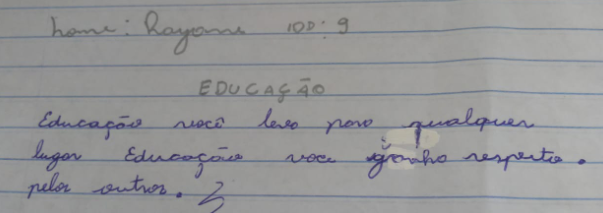 Nome: Rayane IDD: 9
EDUCAÇÃO
Educação você leva para qualquer
lugar Educação voce ganha respeito.
pelos outros.